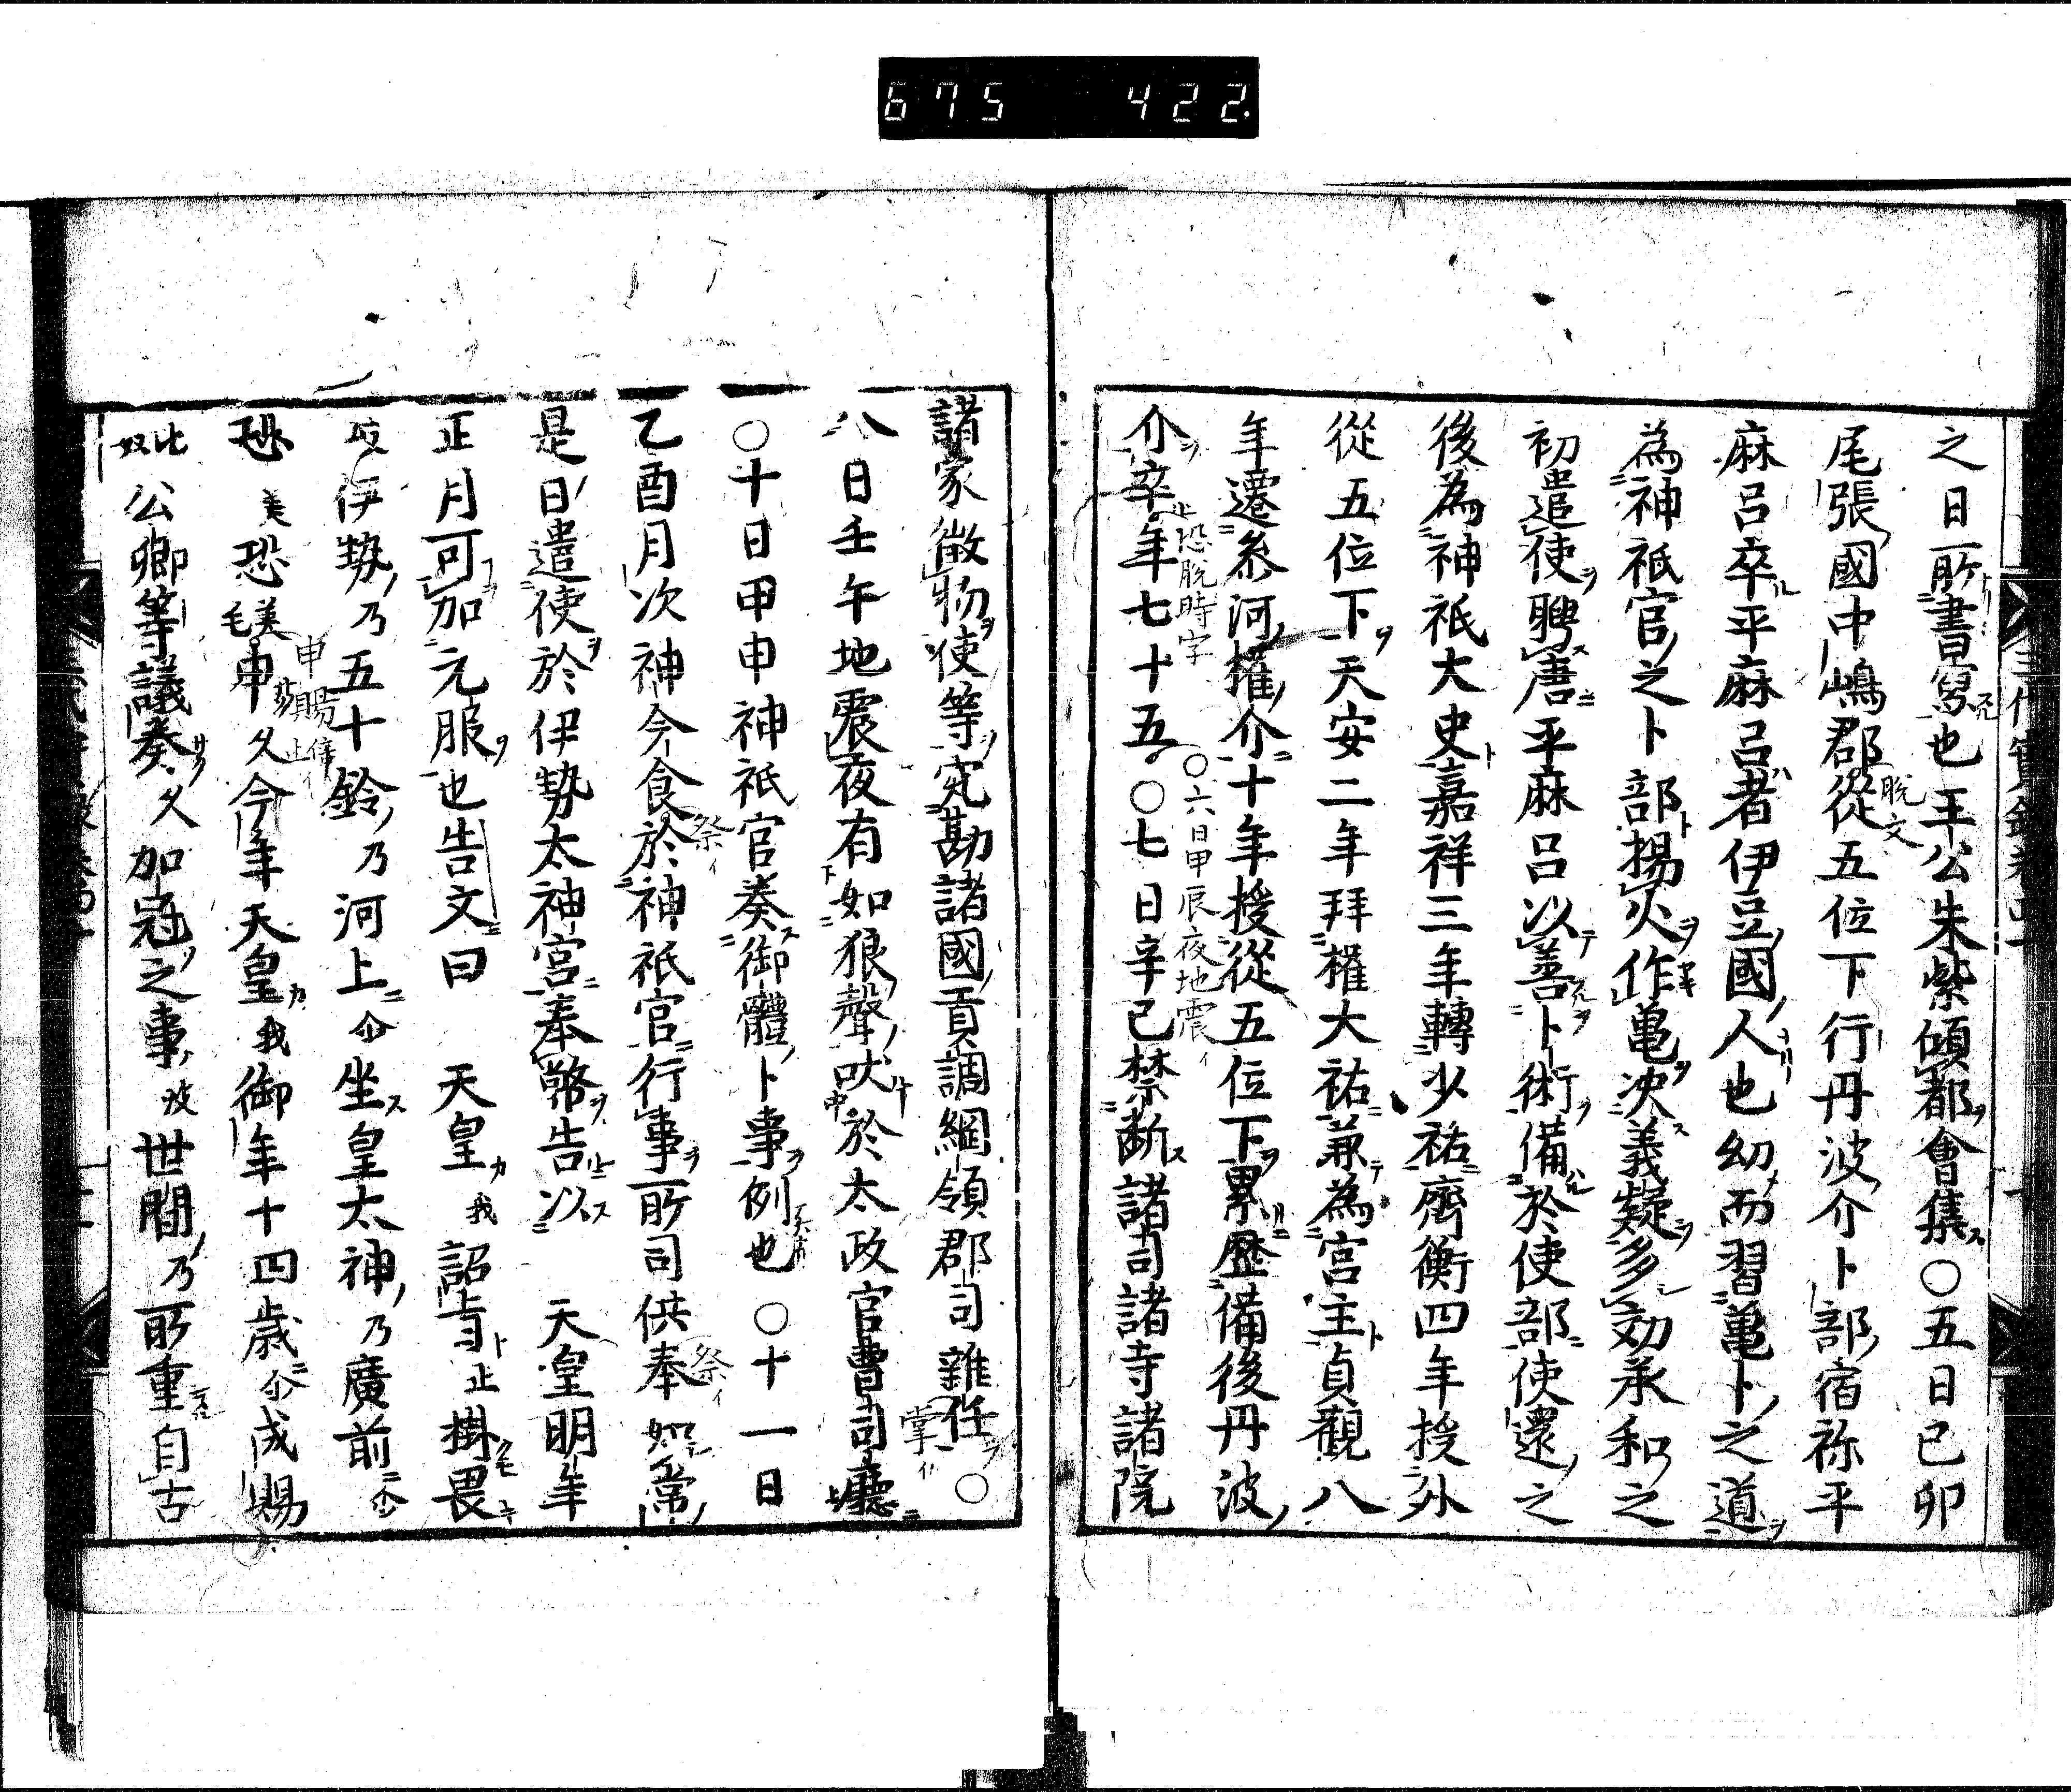 675 422
之日所書寫也王公朱紫傾都會集○五日己卯
尾張國中嶋郡從五位下行丹波介卜部宿祢平
脫文
麻呂卒平麻呂者伊豆國人也幼而習亀卜之道
為神祇官之卜部揚火作亀決義疑多効承和之
初遣使聘唐平麻呂以善卜術備於使部使還之
後為神祇大史嘉祥三年轉少祐齊衡四年授外
從五位下天安二年拜權大祐兼為宮主貞觀八
年遷叅河權介十年授從五位下累歷備後丹波
介卒年七十五○七日辛已禁斷諸司諸寺諸院
恐脫時字
○六日甲辰夜地震イ
諸家徵物使等完勘諸國貢調綱領郡司雜任○
掌イ
八日壬午地震夜有如狼聲吠於太政官曹司廳
○十日甲申神祇官奏御體卜事例也○十一日
乙酉月次神今食於神祇官行事所司供奉如常
祭イ
祭イ
是日遣使於伊勢太神宮奉幣告以 天皇明年
正月可加元服也告文曰 天皇我詔旨止掛畏
岐伊勢乃五十鈴乃河上尒坐皇太神乃廣前尒
恐美恐美毛申久今年天皇我御年十四歲尒成賜
比奴公卿等議奏久加冠之事波世間乃所重自古